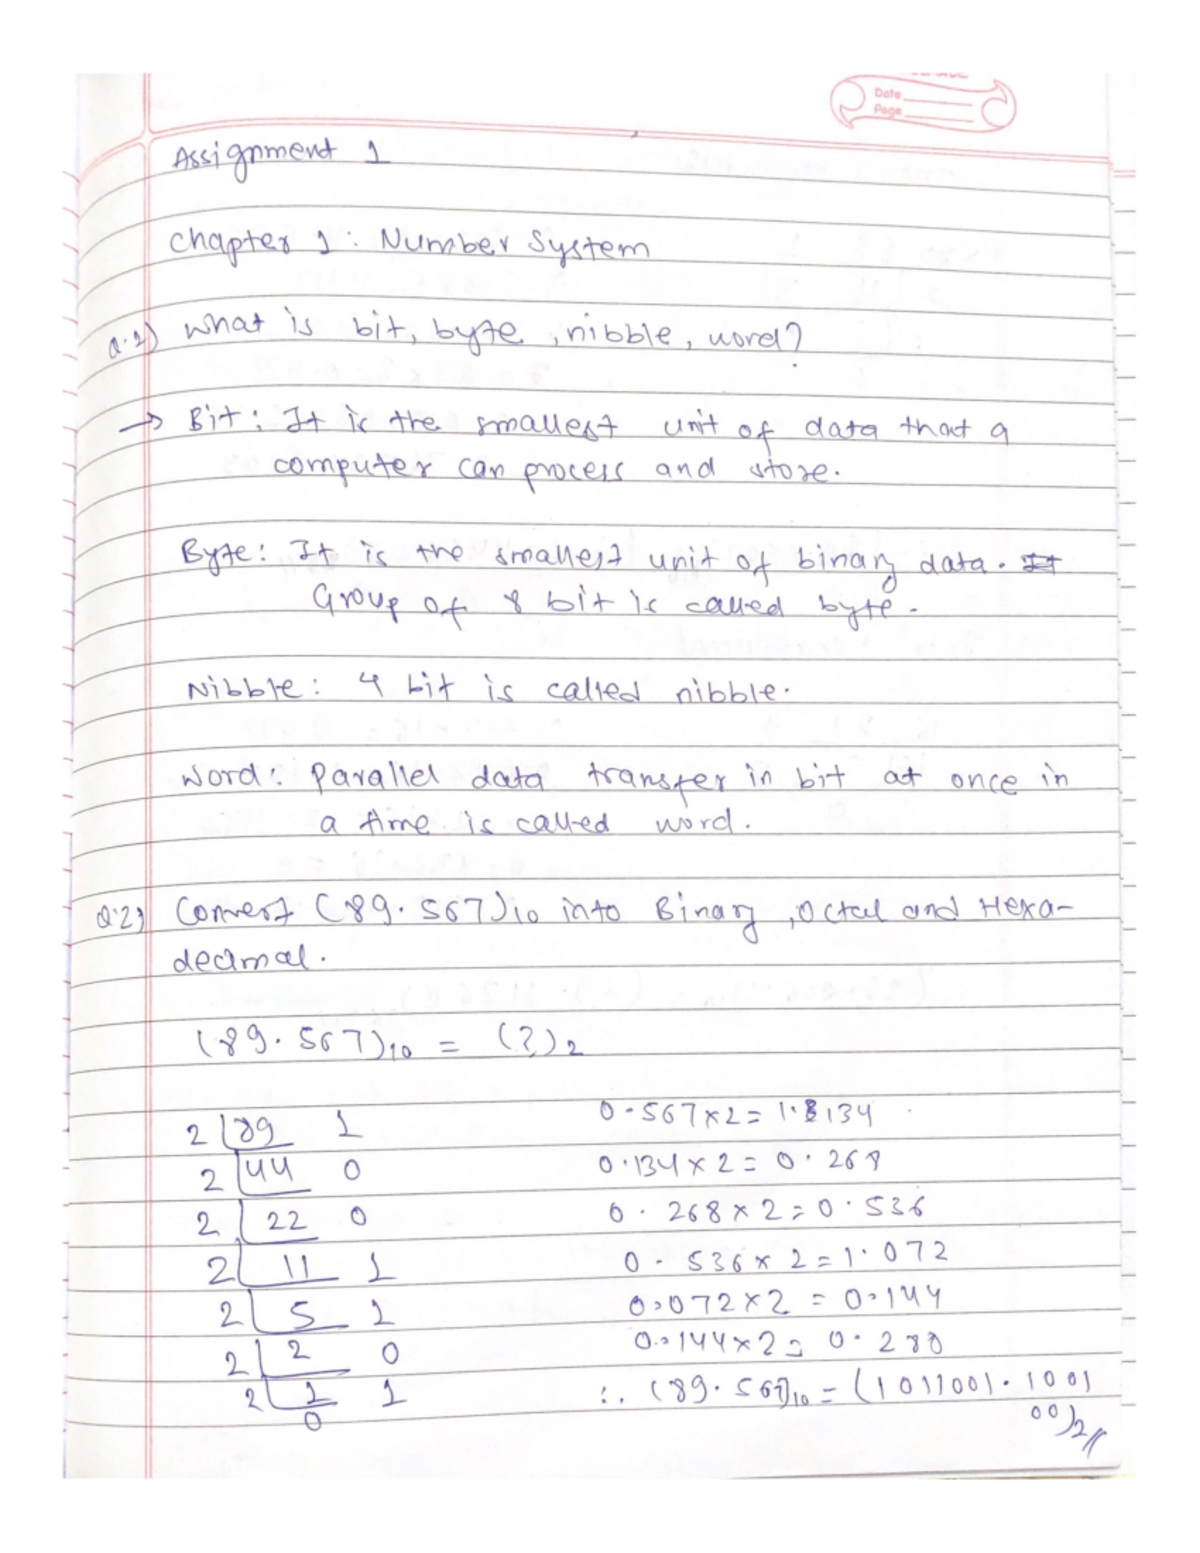 Date
Page
Assignment 1
Chapter 1: Number System
Q.1) What is bit, byte, nibble, word?
→ Bit: It is the smallest unit of data that a
computer can process and store.
Byte: It is the smallest unit of binary data. It
Group of 8 bit is called byte.
Nibble: 4 bit is called nibble.
Word: Parallel data transfer in bit at once in
a time is called word.
Q.2) Convert (89.567)10 into Binary, Octal and Hexa-
decimal.
(89.567)10 = (?)2
2 | 89 1
2 | 44 0
2 | 22 0
2 | 11 1
2 | 5 1
2 | 2 0
2 | 1 1
0
0.567×2=1.134
0.134×2=0.268
0.268×2=0.536
0.536×2=1.072
0.072×2=0.144
0.144×2=0.288
∴ (89.567)10 = (1011001.1001
00)2